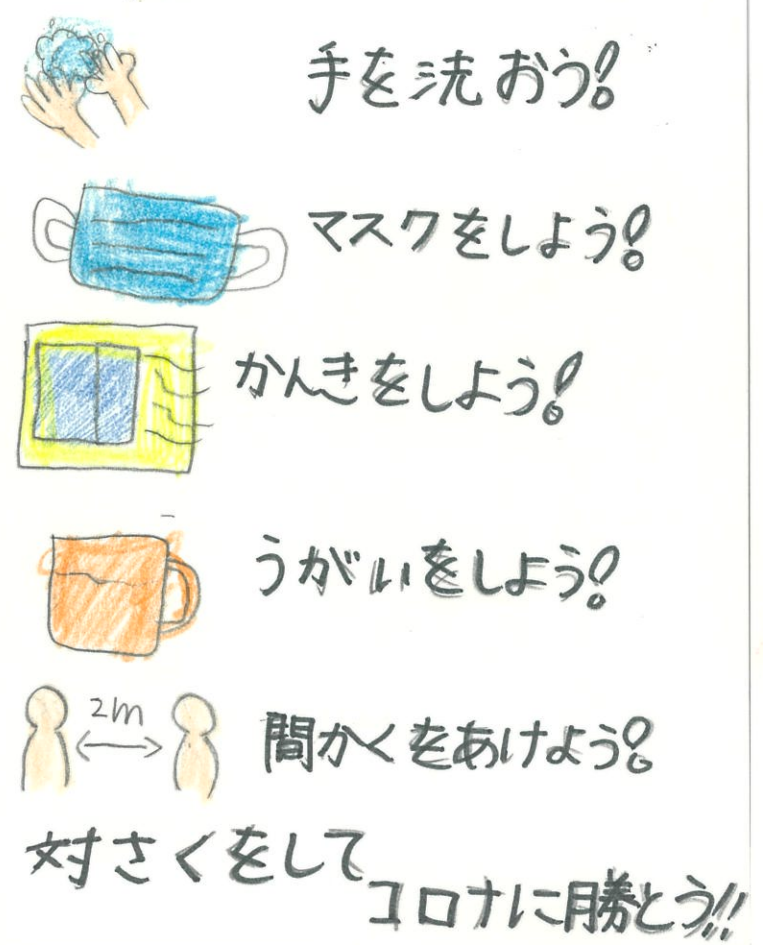 手を洗おう!
マスクをしよう!
かんきをしよう!
うがいをしよう!
2m
間かくをあけよう!
対さくをして
コロナに勝とう!!